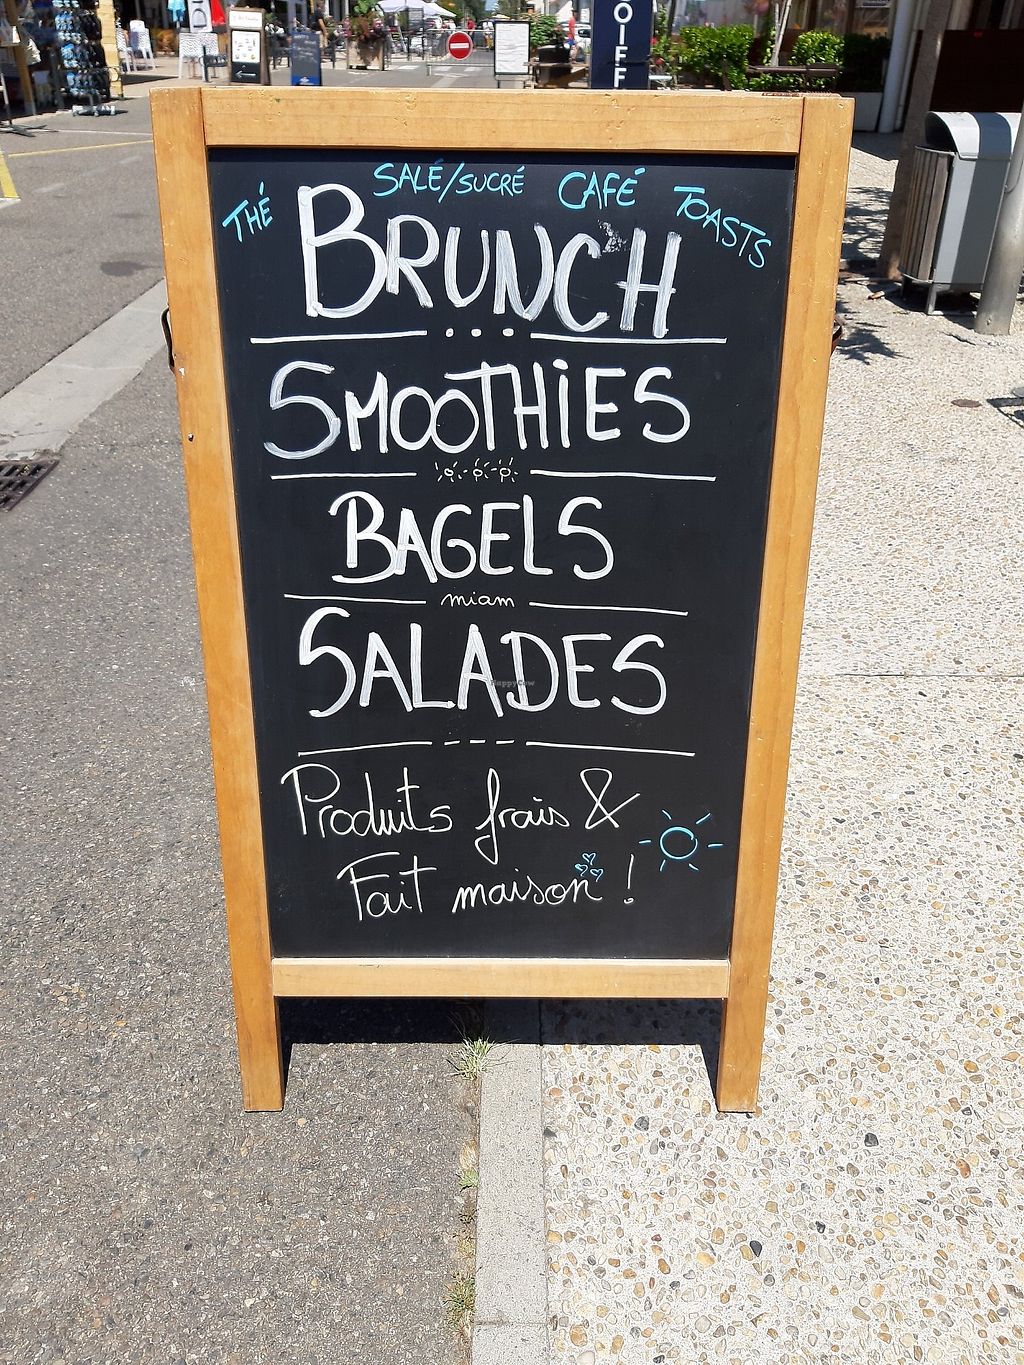 OIFF
THÉ SALÉ/SUCRÉ CAFÉ TOASTS
BRUNCH
SMOOTHIES
BAGELS
miam
SALADES
HappyCow
Produits frais &
Fait maison !